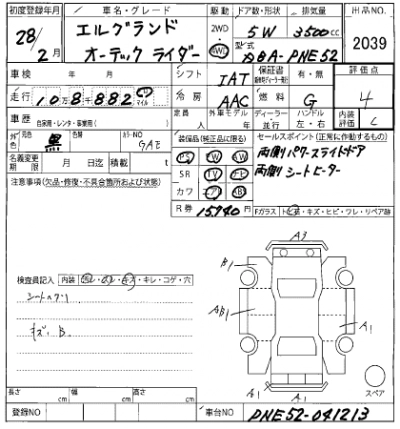 初度登録年月 車名・グレード 駆動 ドア数・形状 排気量 出品NO.
28/2月 エルグランド オーテック ライダー 2WD 4WD 5W 3500cc 2039
型式 DBA-PNE52
車検 年 月 シフト IAT 保証書 有・無 評価点
走行 10万8千882 km マイル 冷房 AAC 燃料 G 4
車歴 自家用・レンタ・事業用( ) 定員 人 外車モデル 年 ディーラー 並行 ハンドル 左・右 内装評価 C
色 元色 黒 色替 カラーNO GAE 装備品(純正品に限る) セールスポイント(正常に作動するもの)
名義変更期限 月 日迄 積載 t PS PW AW 両側パワースライドドア
注意事項(欠品・修復・不具合箇所および状態) SR TV ナビ 両側シートヒーター
カワ エアB ABS
R券 15940円 Fガラス トビ石・キズ・ヒビ・ワレ・リペア跡
A3
B1
検査員記入 内装 スレ・キズ・キレ・コゲ・穴
AB1
A1
キズ・B.
A1 A1
スペア
長さ cm 幅 cm 高さ cm
登録NO 車台NO PNE52-041213